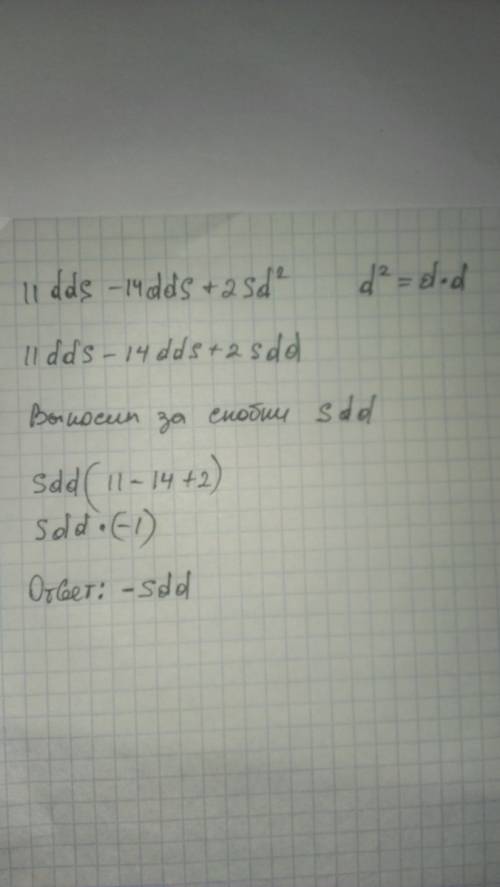 11 dds - 14 dds + 2 sd² d² = d · d
11 dds - 14 dds + 2 sdd
Выносим за скобки sdd
sdd ( 11 - 14 + 2 )
sdd · (-1)
Ответ: - sdd